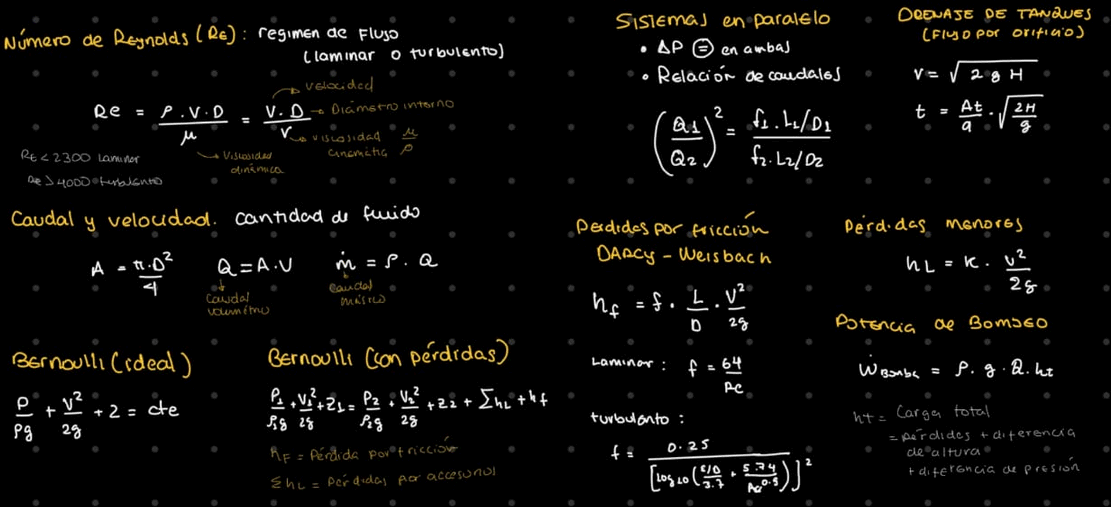 Número de Reynolds (Re): regimen de Flujo
(laminar o turbulento)
Re = ρ.V.D / μ = V.D / ν
→ velocidad
→ Diámetro interno
→ viscosidad cinemática μ/ρ
→ Viscosidad dinámica
Re < 2300 Laminar
Re > 4000 turbulento
Caudal y velocidad. cantidad de fluido
A = π.D² / 4
Q = A.V
ṁ = ρ . Q
Caudal volumétrico
Caudal másico
Bernoulli (ideal)
P/ρg + V²/2g + z = cte
Bernoulli (con pérdidas)
P₁/ρ₁g + V₁²/2g + z₁ = P₂/ρ₂g + V₂²/2g + z₂ + Σh_L + h_f
h_F = Pérdida por fricción
Σh_L = Pérdidas por accesorios
Sistemas en paralelo
• ΔP = en ambas
• Relación de caudales
(Q₁/Q₂)² = f₁.L₁/D₁ / f₂.L₂/D₂
DRENAJE DE TANQUES
(Flujo por orificio)
v = √2gH
t = At/a . √2H/g
Perdidas por fricción
DARCY - Weisbach
h_f = f . L/D . V²/2g
Laminar: f = 64/Re
turbulento:
f = 0.25 / [log10 (ε/D / 3.7 + 5.74 / Re^0.9)]²
Pérdidas menores
h_L = K . V²/2g
Potencia de Bombeo
Ẇ_Bomba = ρ.g.Q.ht
ht = Carga total
= pérdidas + diferencia
de altura
+ diferencia de presión